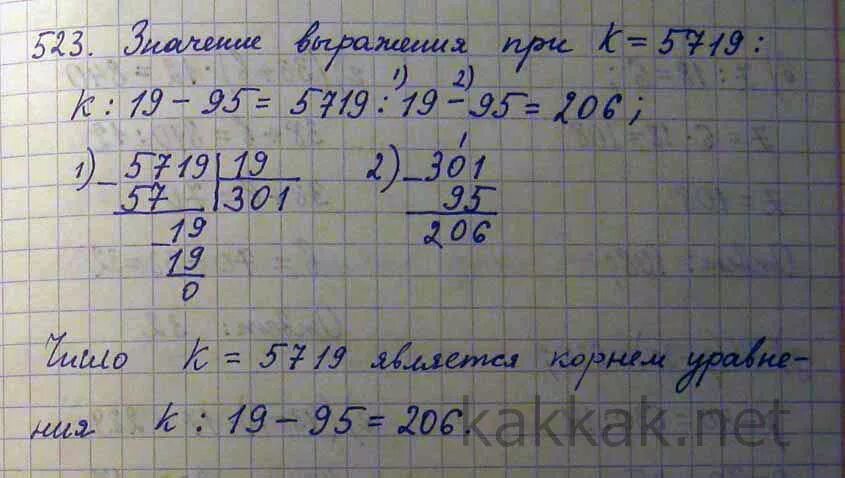 523. Значение выражения при k = 5719 :
1) 2)
k : 19 - 95 = 5719 : 19 - 95 = 206 ;
1) - 5719 | 19 2) - 301
57 | 301 95
- 19 206
19
0
Число k = 5719 является корнем уравне-
ния k : 19 - 95 = 206.
kakkak.net